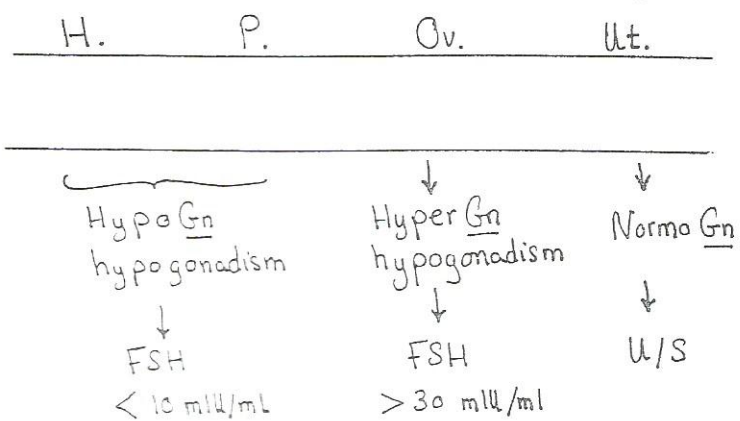 H. P. Ov. Ut.
HypoGn hypogonadism
FSH
< 10 mIU/mL
HyperGn hypogonadism
FSH
> 30 mIU/ml
NormoGn
U/S